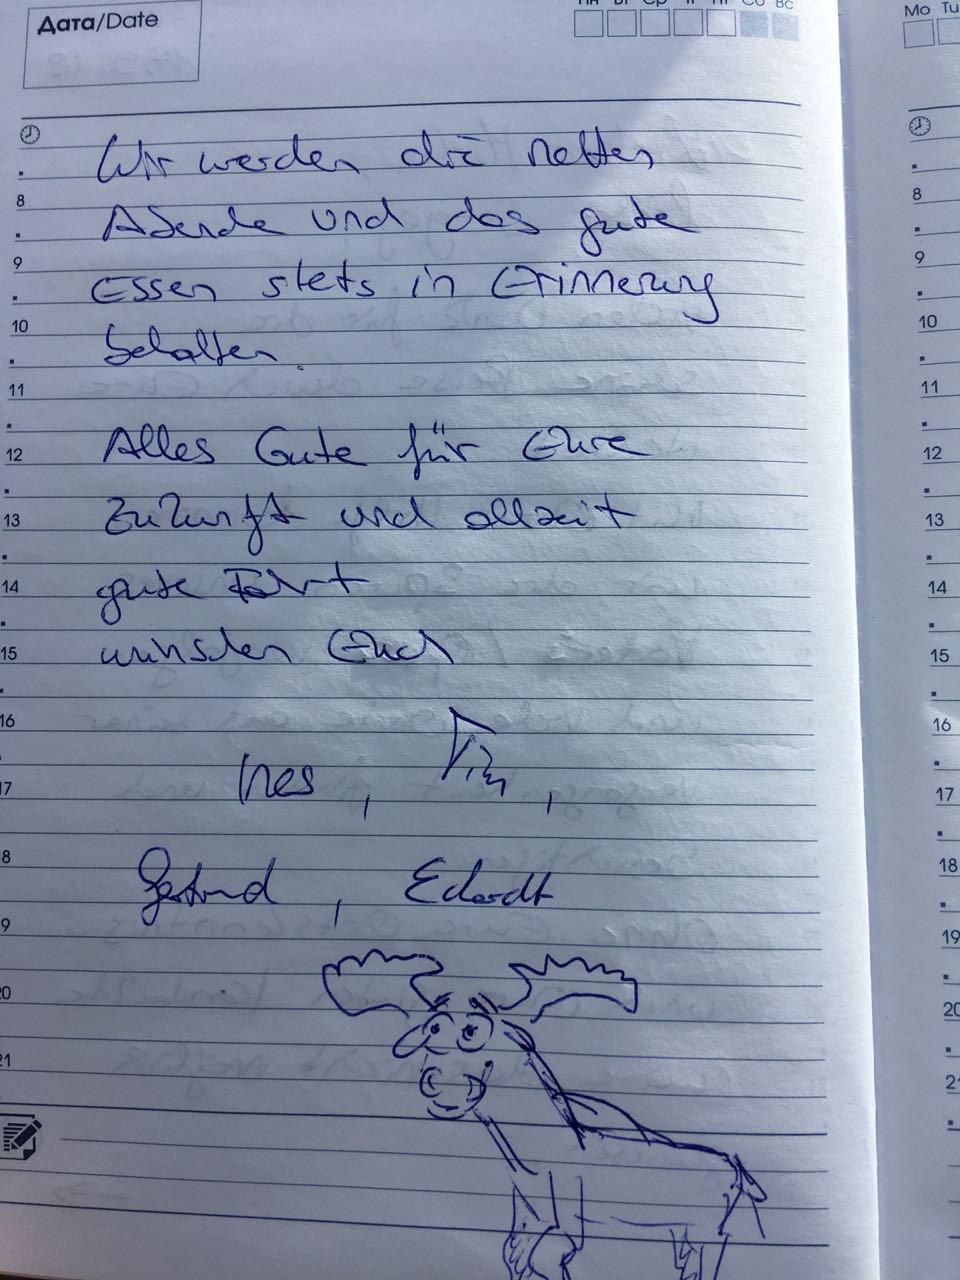 Дата/Date
Пн Вт Ср Чт Пт Сб Вс
Mo Tu
Wir werden die netten
8
Abende und das gute
9
Essen stets in Erinnerung
10
behalten.
11
Alles Gute für Eure
12
Zukunft und allzeit
13
gute Fahrt
14
wünschen Euch
15
16
Ines, Tim,
17
Gertrud, Eckardt
8
9
20
21
8
9
10
11
12
13
14
15
16
17
18
19
20
21